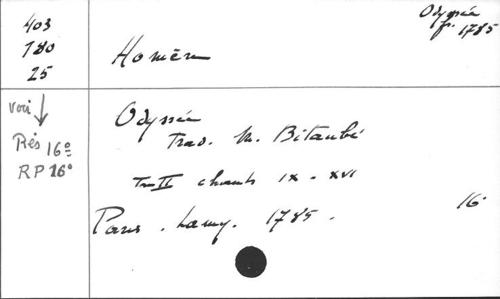 403
180
25
Odyssée
fr. 1785
Homère
voir
Rés 16°
RP 16°
Odyssée
Trad. M. Bitaubé
Tom II chants IX - XVI
Paris. Lamy. 1785.
16°